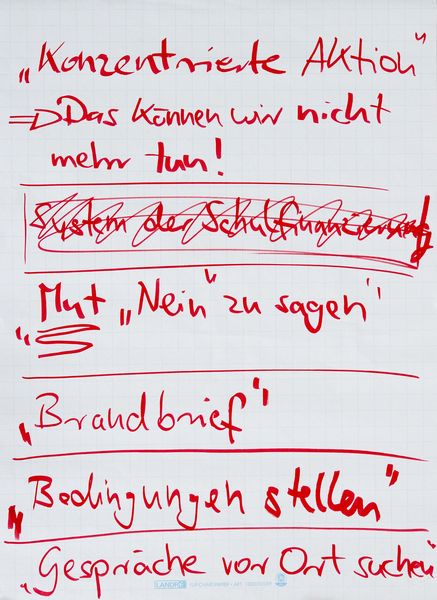 „Konzentrierte Aktion"
⇒ Das können wir nicht
mehr tun!
System der Schulfinanzierung
„Mut „Nein" zu sagen"
„Brandbrief"
„Bedingungen stellen"
„Gespräche vor Ort suchen"
LANDRÉ